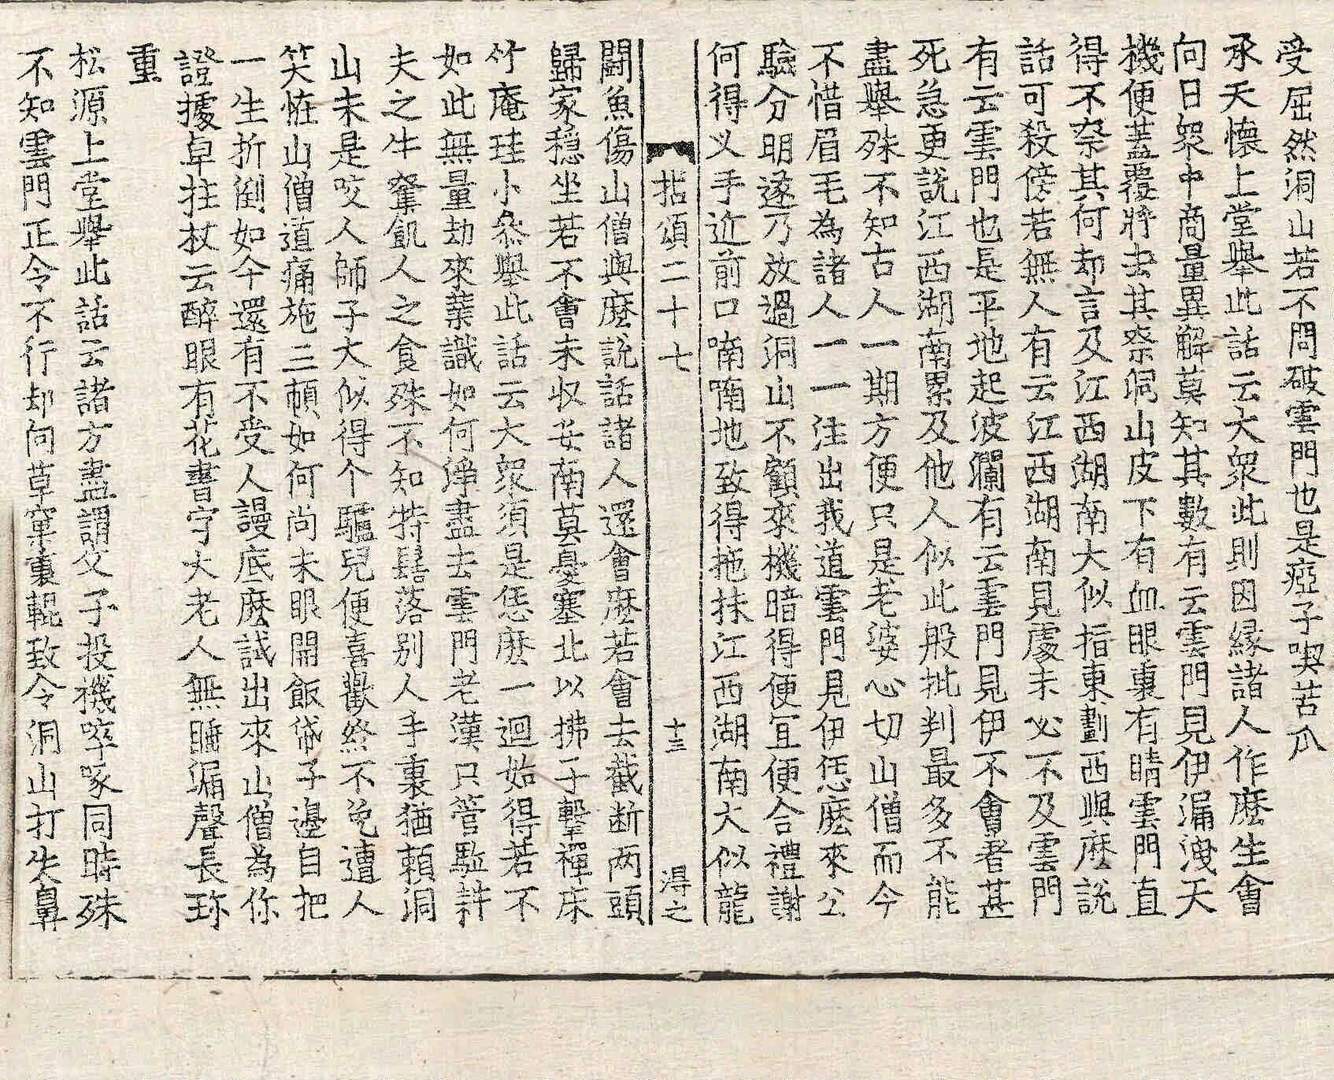 受屈然洞山若不問破雲門也是瘂子喫苦瓜
承天懷上堂舉此話云大衆此則因緣諸人作麽生會
向日衆中商量異解莫知其數有云雲門見伊漏洩天
機便蓋覆將去其柰洞山皮下有血眼裏有睛雲門直
得不柰其何却言及江西湖南大似指東劃西與麽說
話可殺傍若無人有云江西湖南見處未必不及雲門
有云雲門也是平地起波瀾有云雲門見伊不會著甚
死急更說江西湖南累及他人似此般批判最多不能
盡舉殊不知古人一期方便只是老婆心切山僧而今
不惜眉毛為諸人一一注出我道雲門見伊恁麽來公
驗分明遂乃放過洞山不顧來機暗得便冝便合禮謝
何得叉手近前口喃喃地致得拖抹江西湖南大似龍
拈頌二十七 十三 淂之
闘魚傷山僧與麽說話諸人還會麽若會去截断两頭
歸家穩坐若不會未収安南莫憂塞北以拂子擊禪床
竹庵珪小叅舉此話云大衆須是恁麽一迴始得若不
如此無量劫來葉識如何淨盡去雲門老漢只管駈耕
夫之牛奪飢人之食殊不知特髻落别人手裏猶頼洞
山未是咬人師子大似得个驢兒便喜歡然不免遭人
笑恠山僧道痛施三頓如何尚未眼開飯袋子邊自把
一生折倒如今還有不受人謾底麽試出來山僧為你
證據卓拄杖云醉眼有花書字大老人無睡漏聲長珎
重
松源上堂舉此話云諸方盡謂父子投機啐啄同時殊
不知雲門正令不行却向草窠裏輥致令洞山打失鼻